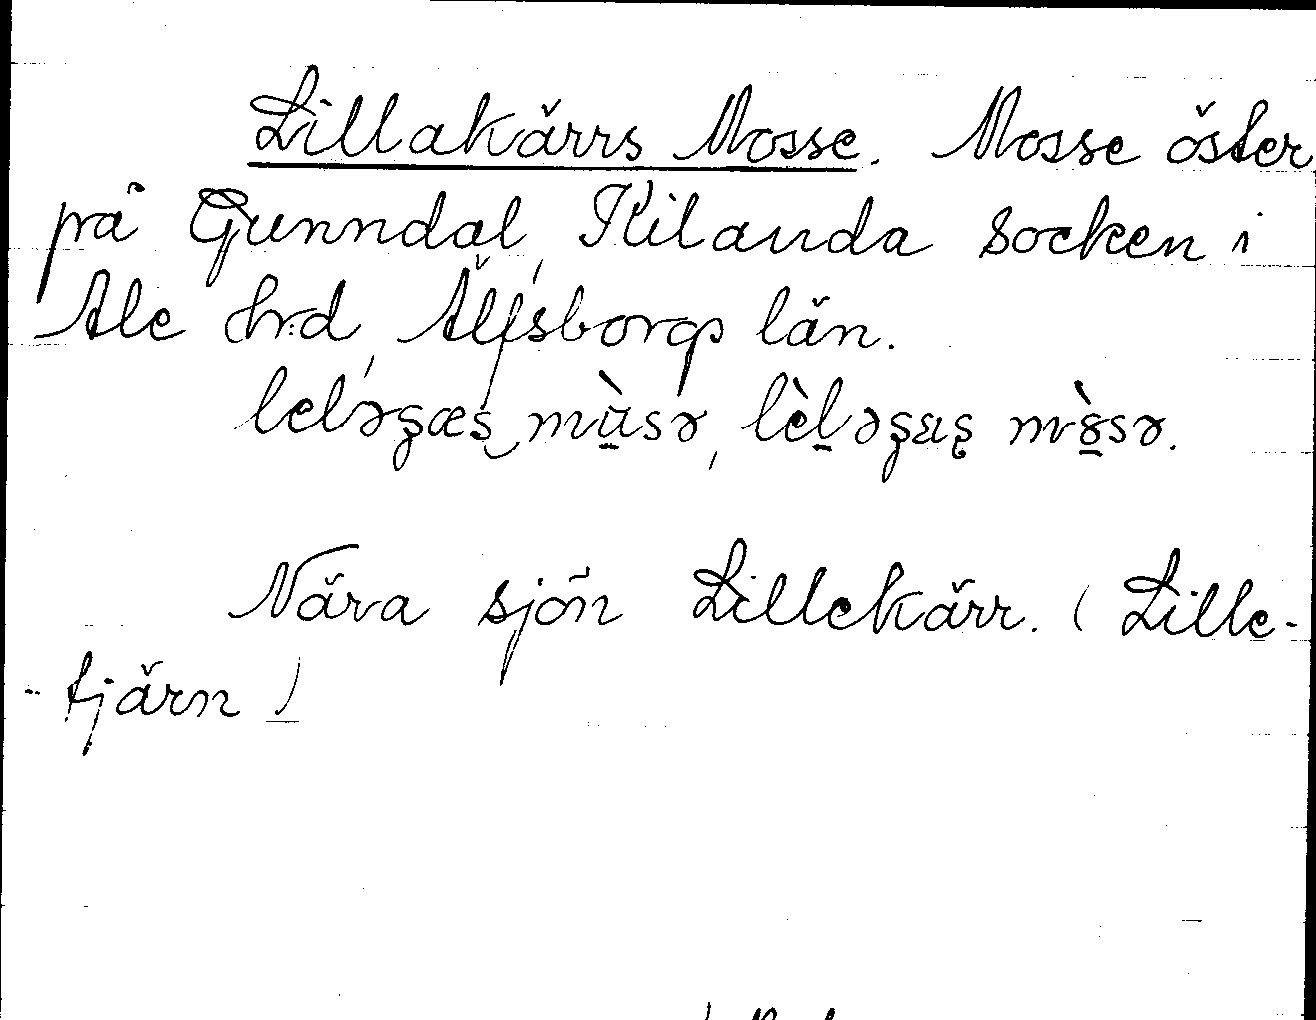 Lillakärrs Mosse. Mosse öster
på Gunndal, Kilanda socken i
Ale hrd, Älfsborgs län.
lelǝʂæs mùsǝ, lèlǝʂɛʂ mòsǝ.
Nära sjön Lillekärr. (Lille-
tjärn)